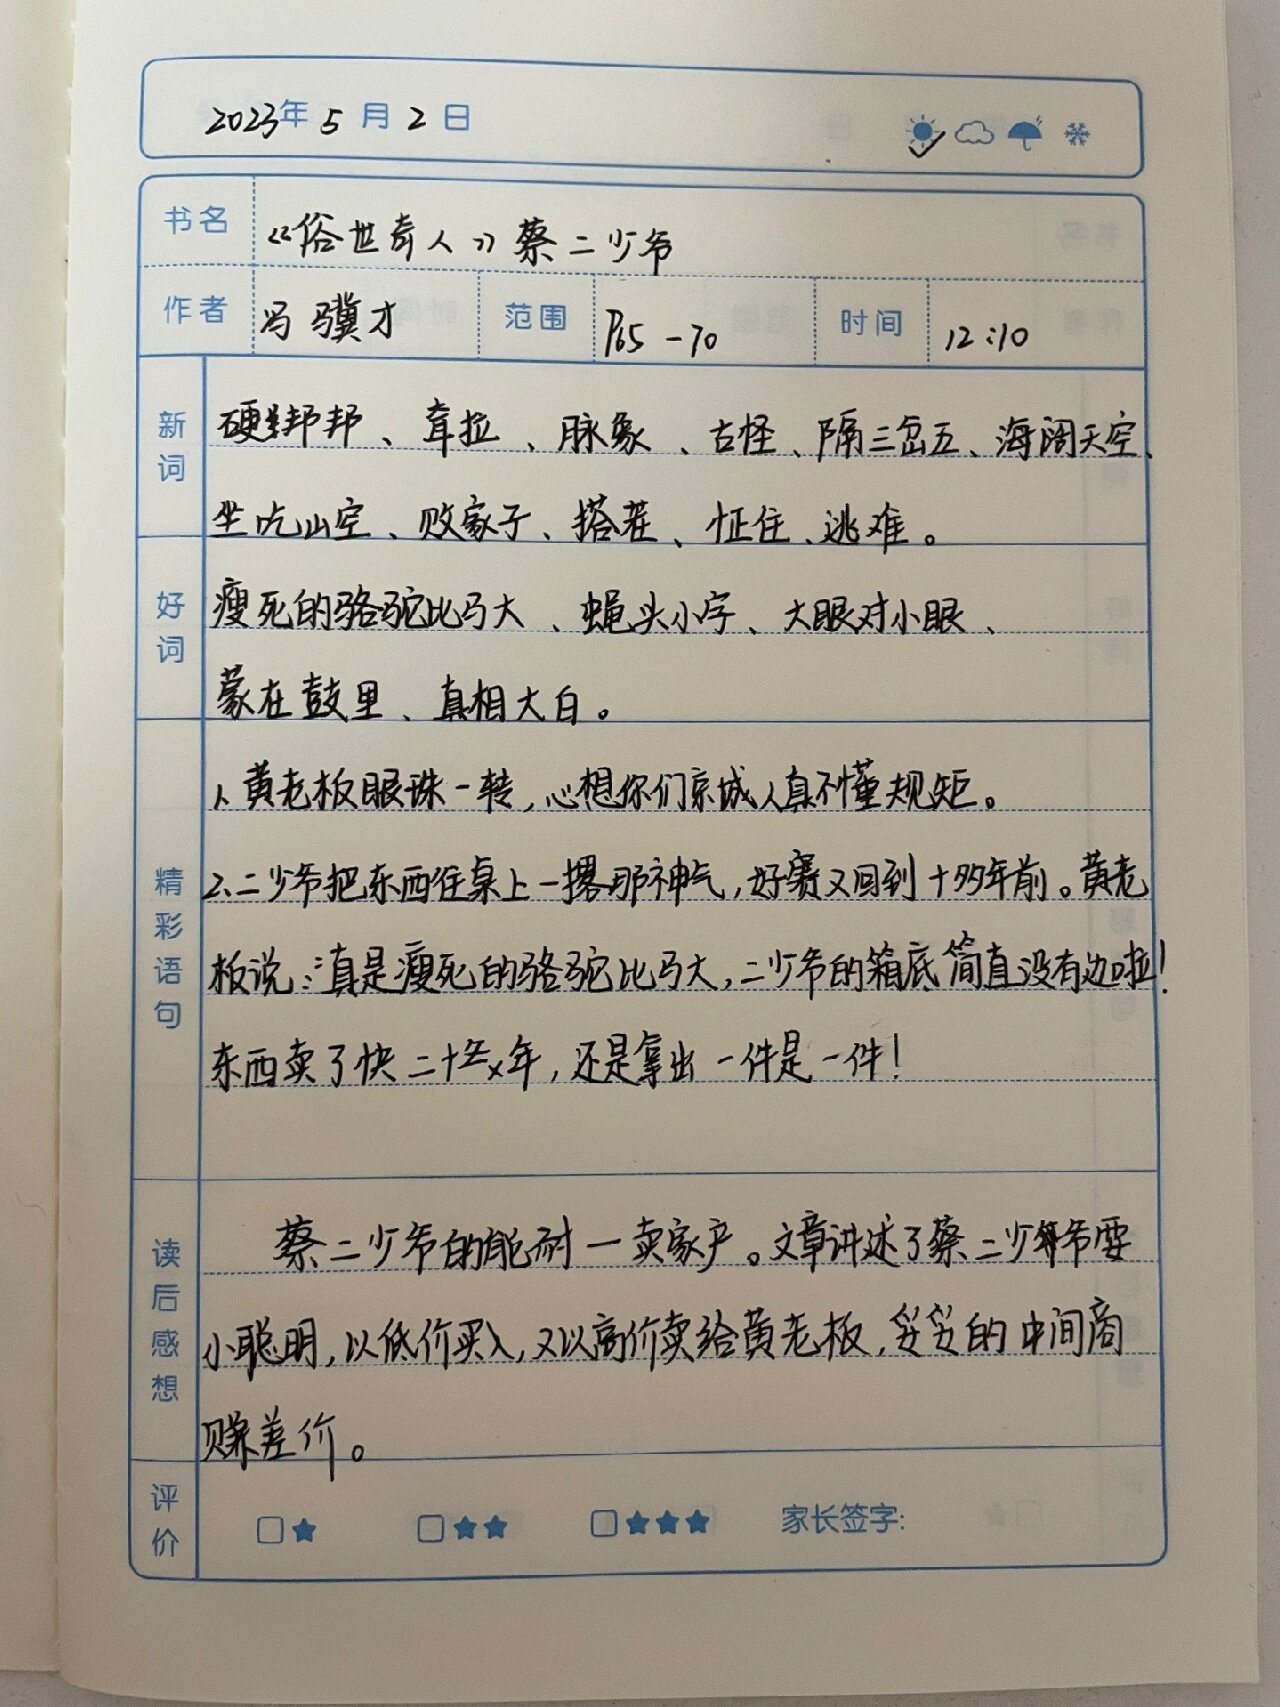 2023年5月2日
书名 《俗世奇人》蔡二少爷
作者 冯骥才 范围 P65-70 时间 12:10
新词 硬邦邦、耷拉、脉象、古怪、隔三岔五、海阔天空、
坐吃山空、败家子、搭茬、怔住、逃难。
好词 瘦死的骆驼比马大、蝇头小字、大眼对小眼、
蒙在鼓里、真相大白。
精彩语句 1、黄老板眼珠一转,心想你们京城人真不懂规矩。
2、二少爷把东西往桌上一撂那神气,好赛又回到十多年前。黄老
板说:真是瘦死的骆驼比马大,二少爷的箱底简直没有边啦!
东西卖了快二十年,还是拿出一件是一件!
读后感想 蔡二少爷的能耐一卖家产。文章讲述了蔡二少爷耍
小聪明,以低价买入,又以高价卖给黄老板,妥妥的中间商
赚差价。
评价 □★ □★★ □★★★ 家长签字: